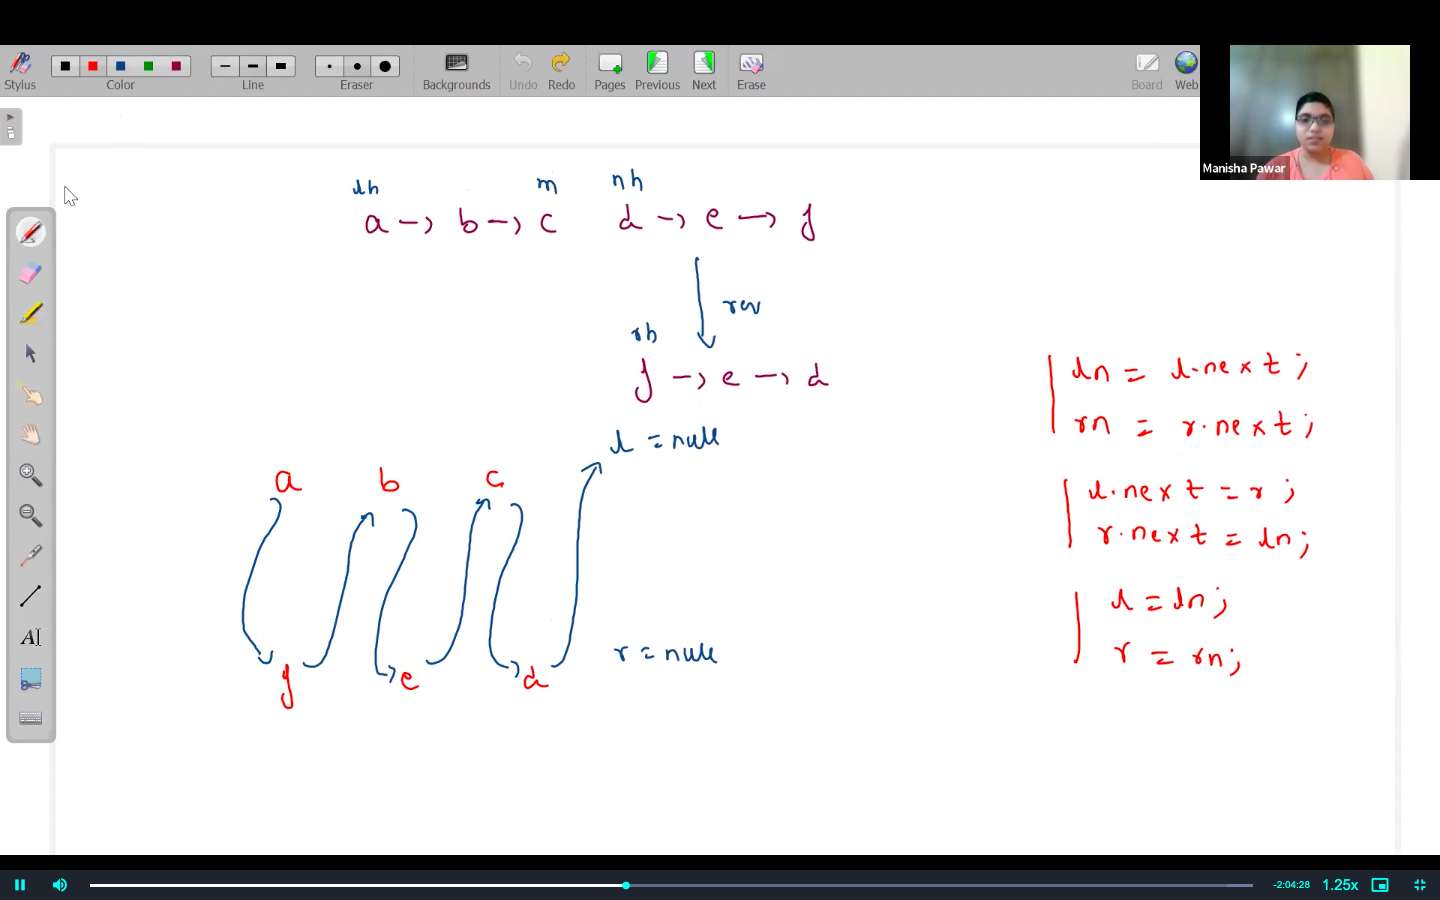 Stylus Color Line Eraser Backgrounds Undo Redo Pages Previous Next Erase Board Web
Manisha Pawar
lh m nh
a -> b -> c d -> e -> f
rev
rh
f -> e -> d
l = null
a b c
f e d
r = null
ln = l.next;
rn = r.next;
l.next = r;
r.next = ln;
l = ln;
r = rn;
AI
-2:04:28 1.25x